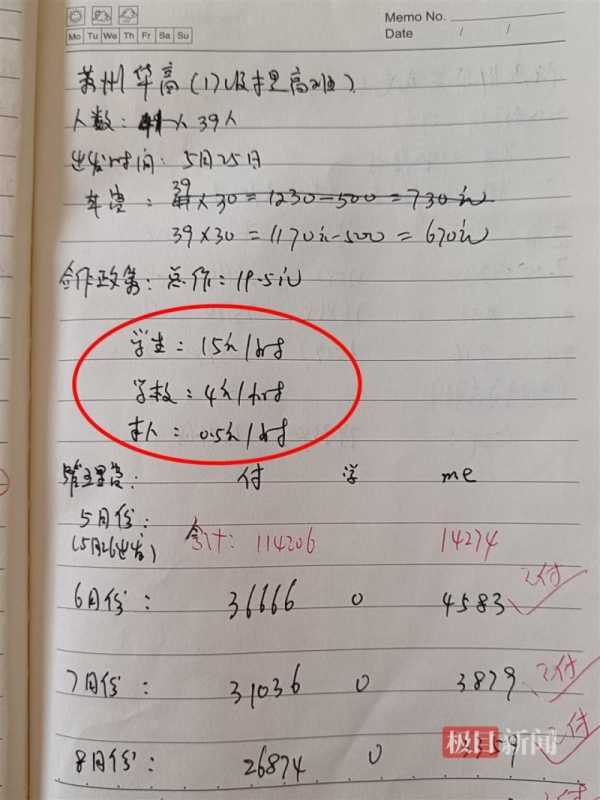 Memo No.
Mo Tu We Th Fr Sa Su
Date / /
苏州华高(17级 高 班)
人数: 41人 39人
出发时间: 5月25日
39
车费: 41×30=1230-500=730元
39×30=1170元-500=670元
合作政策: 总价: 19.5元
学生: 15元/hr
学校: 4元/hr
本人: 0.5元/hr
管理费: 付 学 me
5月份:
(5月26出发) 合计: 114206 14274
6月份: 36666 0 4583 已付
7月份: 31036 0 3879 已付
8月份: 26874 0 59 已付
极目新闻